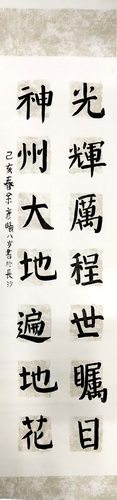 光輝厲程世矚目
神州大地遍地花
己亥春余彦晴八岁書於長沙